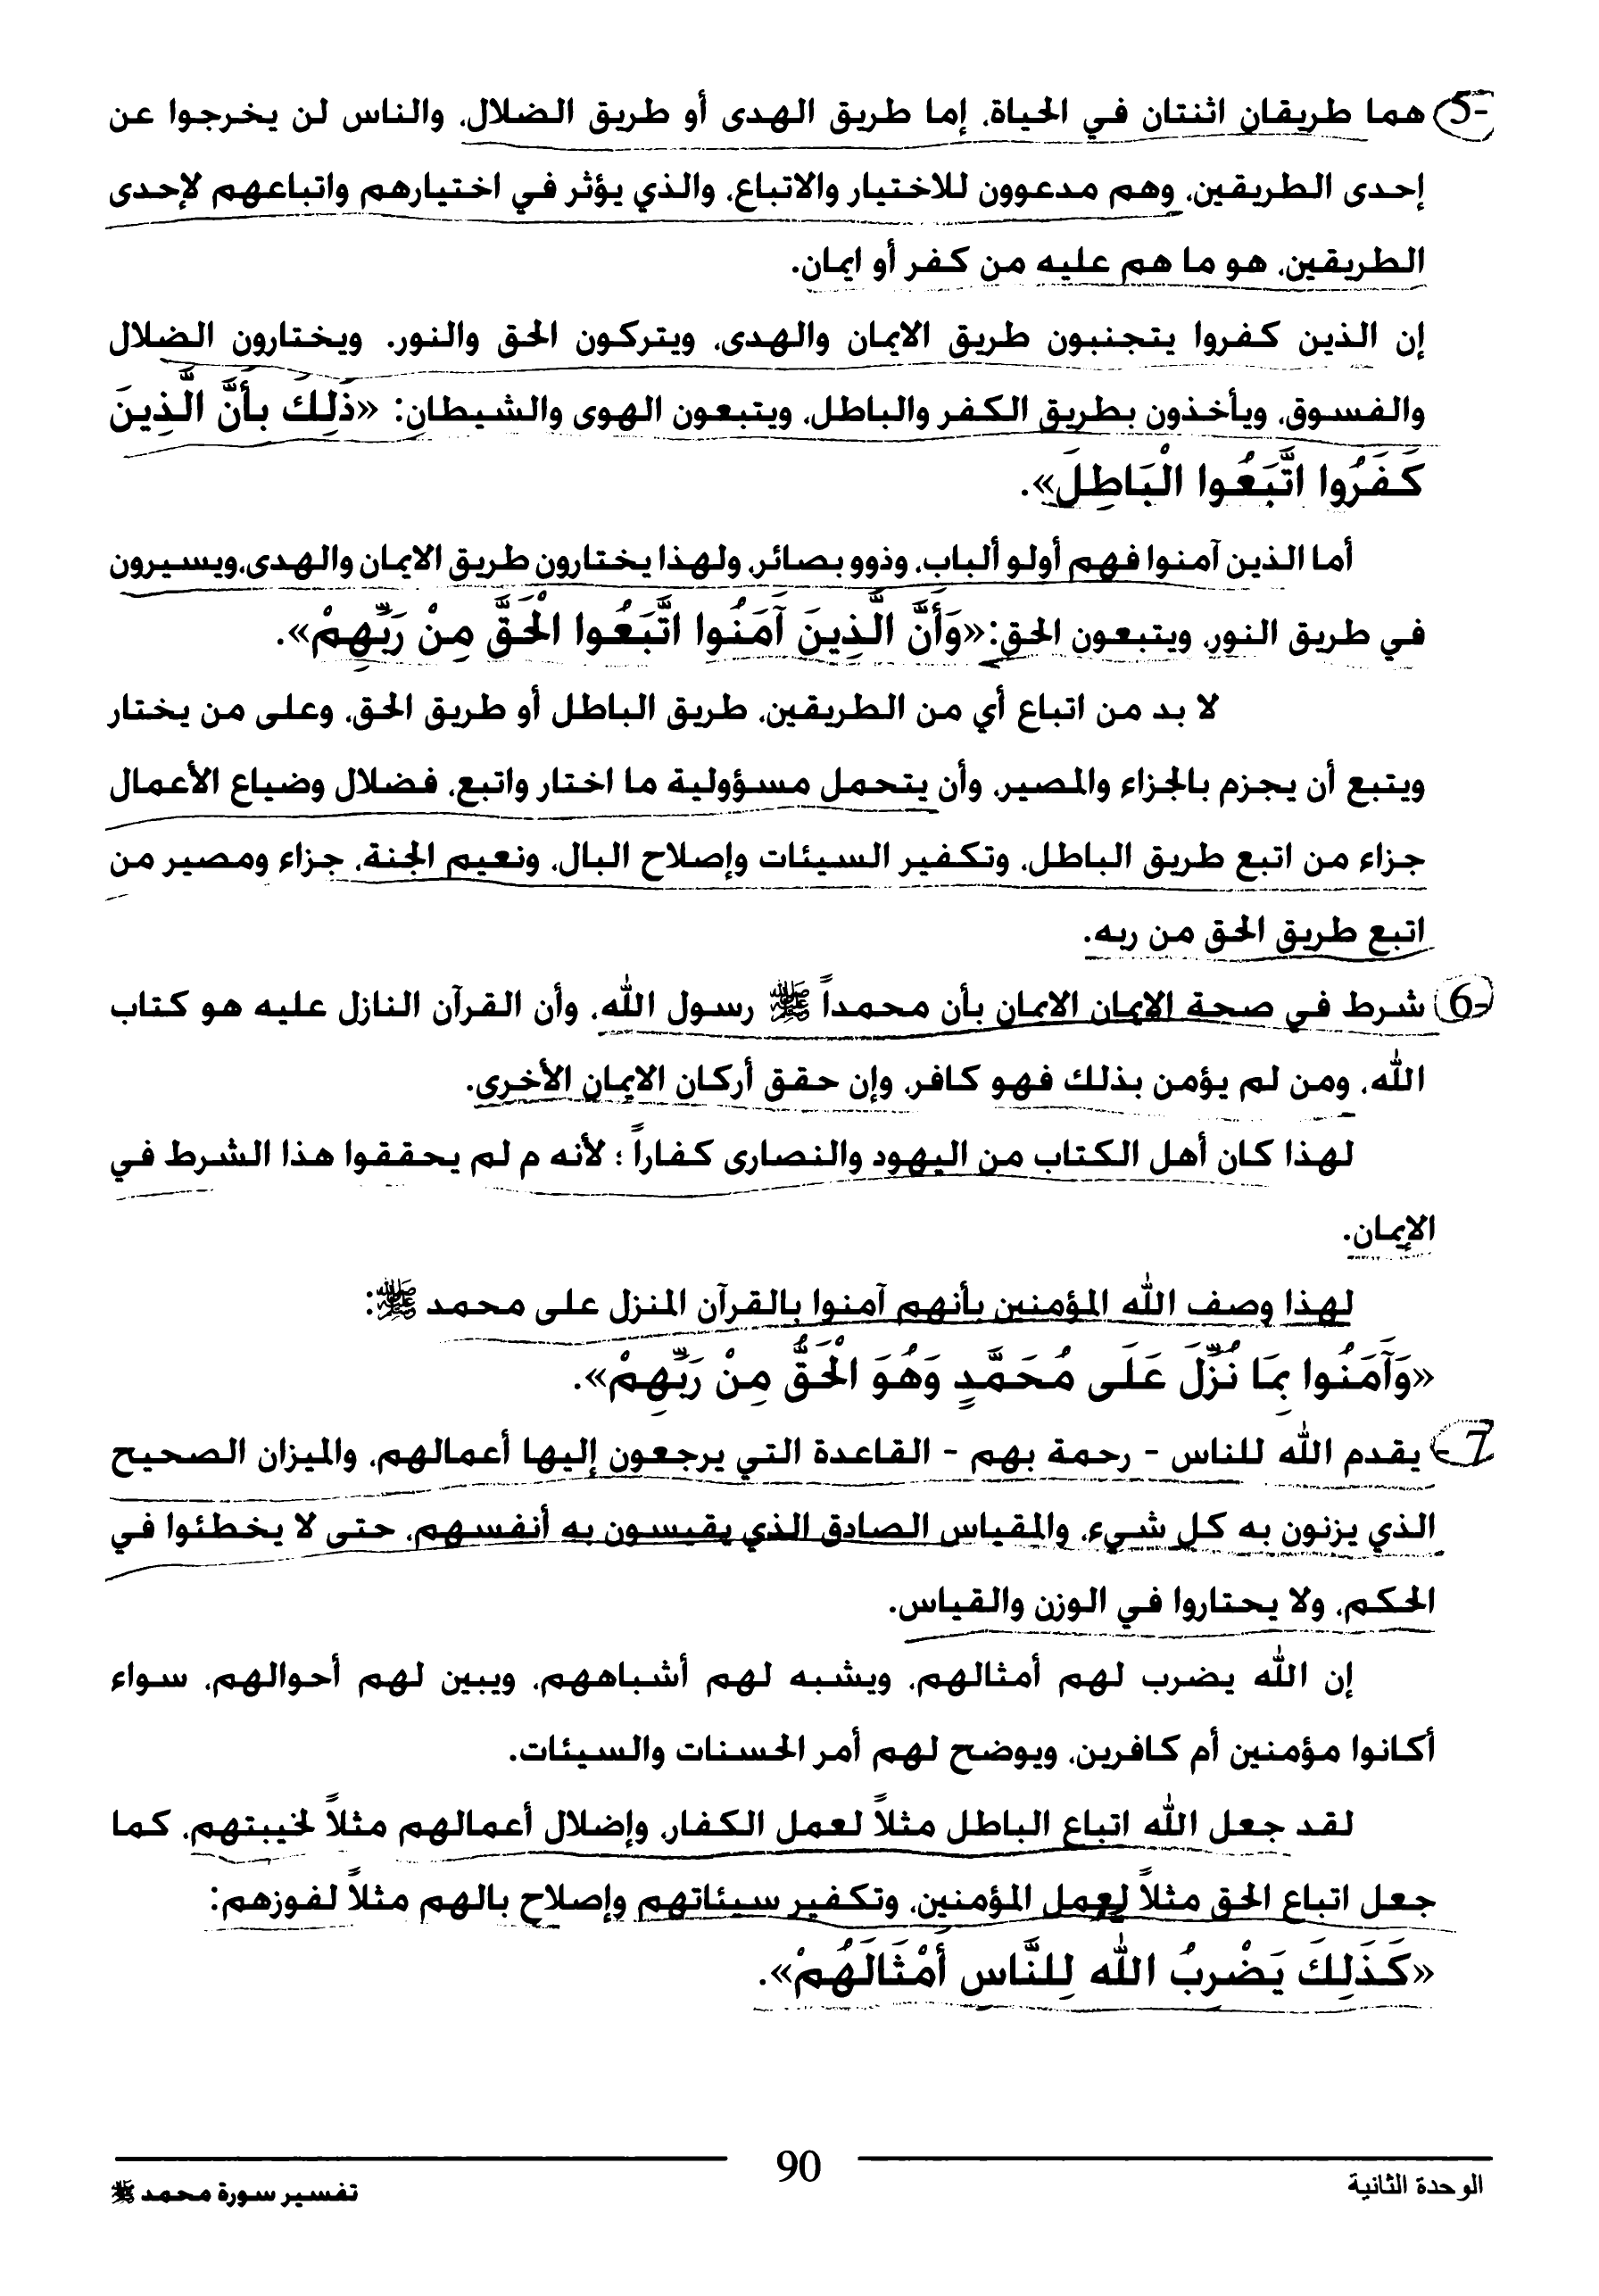 5- هما طريقان اثنتان في الحياة، إما طريق الهدى أو طريق الضلال، والناس لن يخرجوا عن
إحدى الطريقين، وهم مدعوون للاختيار والاتباع، والذي يؤثر في اختيارهم واتباعهم لإحدى
الطريقين، هو ما هم عليه من كفر أو ايمان.
إن الذين كفروا يتجنبون طريق الايمان والهدى، ويتركون الحق والنور. ويختارون الضلال
والفسوق، ويأخذون بطريق الكفر والباطل، ويتبعون الهوى والشيطان: «ذَلِكَ بِأَنَّ الَّذِينَ
كَفَرُوا اتَّبَعُوا الْبَاطِلَ».
أما الذين آمنوا فهم أولو ألباب، وذوو بصائر، ولهذا يختارون طريق الايمان والهدى،ويسيرون
في طريق النور، ويتبعون الحق:«وَأَنَّ الَّذِينَ آمَنُوا اتَّبَعُوا الْحَقَّ مِنْ رَبِّهِمْ».
لا بد من اتباع أي من الطريقين، طريق الباطل أو طريق الحق، وعلى من يختار
ويتبع أن يجزم بالجزاء والمصير، وأن يتحمل مسؤولية ما اختار واتبع، فضلال وضياع الأعمال
جزاء من اتبع طريق الباطل، وتكفير السيئات وإصلاح البال، ونعيم الجنة، جزاء ومصير من
اتبع طريق الحق من ربه.
6- شرط في صحة الايمان الايمان بأن محمداً ﷺ رسول الله، وأن القرآن النازل عليه هو كتاب
الله، ومن لم يؤمن بذلك فهو كافر، وإن حقق أركان الايمان الأخرى.
لهذا كان أهل الكتاب من اليهود والنصارى كفاراً ؛ لأنه م لم يحققوا هذا الشرط في
الإيمان.
لهذا وصف الله المؤمنين بأنهم آمنوا بالقرآن المنزل على محمد ﷺ:
«وَآمَنُوا بِمَا نُزِّلَ عَلَى مُحَمَّدٍ وَهُوَ الْحَقُّ مِنْ رَبِّهِمْ».
7- يقدم الله للناس - رحمة بهم - القاعدة التي يرجعون إليها أعمالهم، والميزان الصحيح
الذي يزنون به كل شيء، والمقياس الصادق الذي يقيسون به أنفسهم، حتى لا يخطئوا في
الحكم، ولا يحتاروا في الوزن والقياس.
إن الله يضرب لهم أمثالهم، ويشبه لهم أشباههم، ويبين لهم أحوالهم، سواء
أكانوا مؤمنين أم كافرين، ويوضح لهم أمر الحسنات والسيئات.
لقد جعل الله اتباع الباطل مثلاً لعمل الكفار، وإضلال أعمالهم مثلاً لخيبتهم، كما
جعل اتباع الحق مثلاً لعمل المؤمنين، وتكفير سيئاتهم وإصلاح بالهم مثلاً لفوزهم:
«كَذَلِكَ يَضْرِبُ الله لِلنَّاسِ أَمْثَالَهُمْ».
الوحدة الثانية
90
تفسير سورة محمد ﷺ